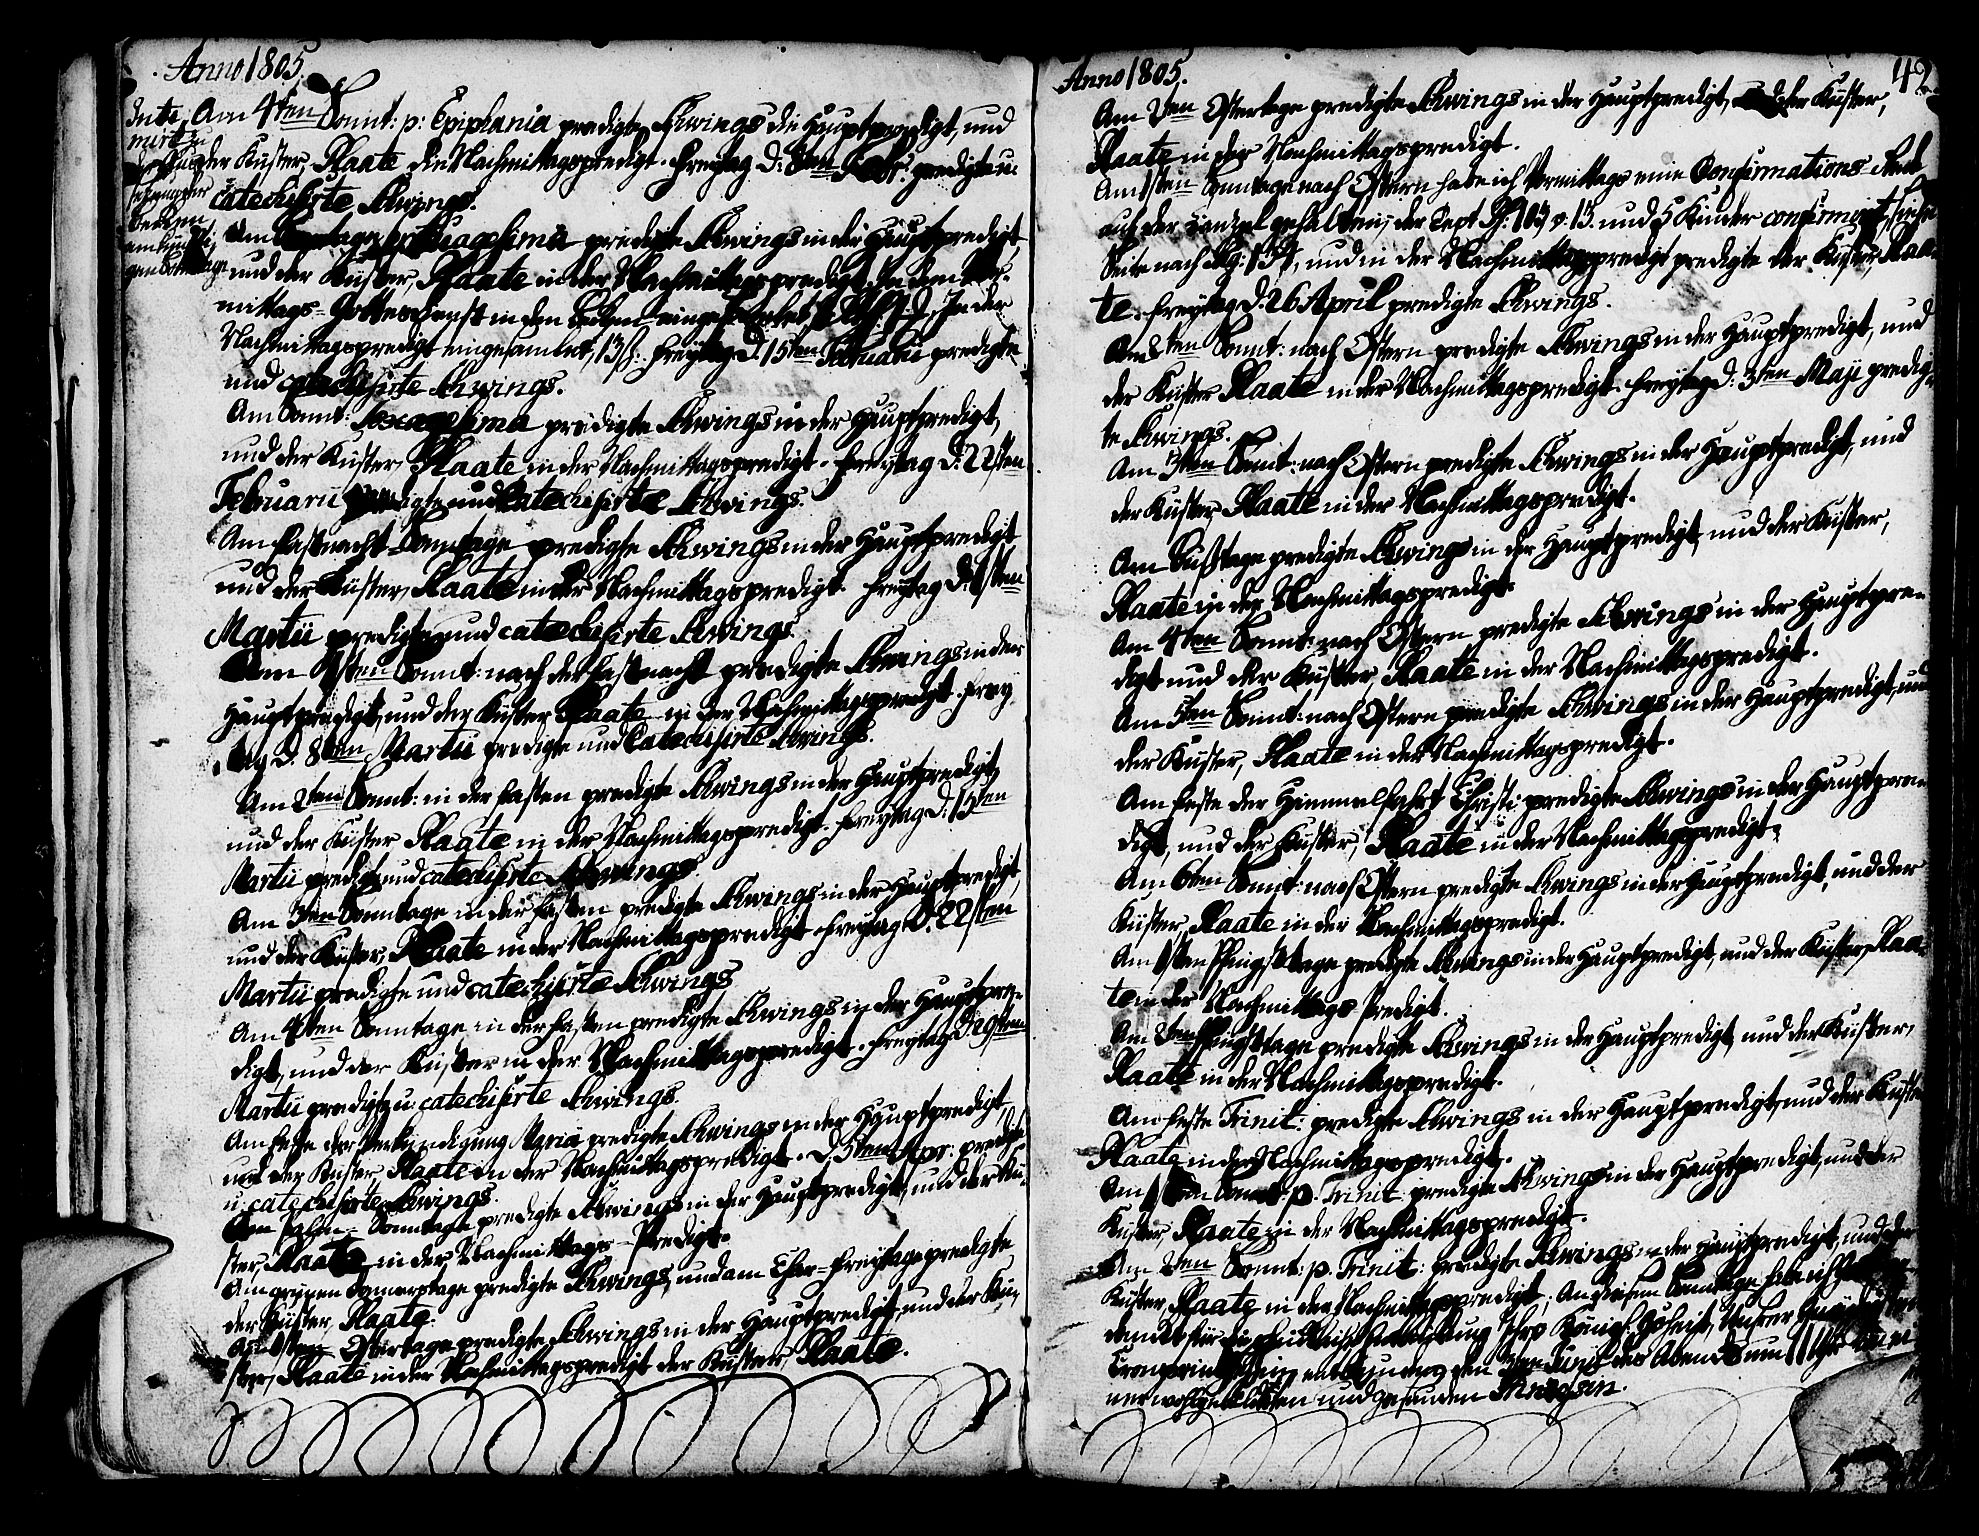 Anno 1805.
Am 4ten Sonnt: p: Epiphania predigte Ahwings die Hauptpredigt, und
der Küster, Plaate die Nachmittagspredigt. Freytag d: 8ten Febr: predigte u:
catechisirte Ahwings.
Am Septuagesima predigte Ahwings in der Hauptpredigt
und der Küster, Plaate in der Nachmittagspredigt. In dem Vor-
mittags-Gottesdienst in den Becken In der
Nachmittagspredigt eingesamlet, 13 ß. Freytag d. 15ten Februarii predigte
und catechisirte Ahwings.
Am Sonnt: Sexagesima predigte Ahwings in der Hauptpredigt,
und der Küster, Plaate in der Nachmittagspredigt. Freytag d. 22sten
Februarii predigte und catechisirte Ahwings.
Am Fastnacht-Sonntage predigte Ahwings in der Hauptpredigt
und der Küster, Plaate in der Nachmittagspredigt. Freytag d. 1sten
Martii predigte und catechisirte Ahwings.
Am 1sten Sonnt: nach der Fastnacht predigte Ahwings in der
Hauptpredigt, und der Küster Plaate in der Nachmittagspredigt. Frey-
tag d. 8ten Martii predigte und catechisirte Ahwings.
Am 2ten Sonnt: in der Fasten predigte Ahwings in der Hauptpredigt,
und der Küster Plaate in der Nachmittagspredigt. Freytag d. 15ten
Martii predigt und catechisirte Ahwings.
Am 3ten Sonntage in der Fasten predigte Ahwings in der Hauptpredigt,
und der Küster, Plaate in der Nachmittagspredigt. Freytag d. 22sten
Martii predigte und catechisirte Ahwings
Am 4ten Sonntage in der Fasten predigte Ahwings in der Hauptpre-
digt, und der Küster in der Nachmittagspredigt. Freytag d 29sten
Martii predigt u: catechisirte Ahwings.
Am Feste der Verkündigung Mariä predigte Ahwings in der Hauptpredigt,
und der Küster, Plaate in der Nachmittagspredigt. d. 5ten Apr: predigte
u: catechisirte Ahwings.
Am Palm-Sonntage predigte Ahwings in der Hauptpredigt, und der Kü-
ster, Plaate in der Nachmittags-Predigt.
Am grünen Donnerstage predigte Ahwings, und am Char-Freytage predigte
der Küster, Plaate.
Am 1sten Ostertage predigte Ahwings in der Hauptpredigt, und der Kü-
ster, Plaate in der Nachmittagspredigt der Küster, Plaate.
Anno 1805.
42
Am 2ten Ostertage predigte Ahwings in der Hauptpredigt, und der Küster,
Plaate in der Nachmittagspredigt.
Am 1sten Sonntage nach Ostern habe ich Vormittags eine Confirmations-Rede
auf der Canzel gehalten, der Text Ps: 103 v: 13. und 5 Kinder confirmirt, siehe
Seite nach und in der Nachmittagspredigt predigte der Küster, Plaa-
te. Freytag d. 26 April predigte Ahwings.
Am 2ten Sonnt: nach Ostern predigte Ahwings in der Hauptpredigt, und
der Küster Plaate in der Nachmittagspredigt. Freytag d: 3ten Maji predig-
te Ahwings.
Am 3ten Sonnt: nach Ostern predigte Ahwings in der Hauptpredigt, und
der Küster, Plaate in der Nachmittagspredigt.
Am Bußtage predigte Ahwings in der Hauptpredigt, und der Küster,
Plaate in der Nachmittagspredigt.
Am 4ten Sonnt: nach Ostern predigte Ahwings in der Hauptpre-
digt und der Küster, Plaate in der Nachmittagspredigt.
Am 5ten Sonnt: nach Ostern predigte Ahwings in der Hauptpredigt, und
der Küster, Plaate in der Nachmittagspredigt.
Am Feste der Himmelfahrt Christi predigte Ahwings in der Hauptpre-
digt, und der Küster, Plaate in der Nachmittagspredigt.
Am 6ten Sonnt: nach Ostern predigte Ahwings in der Hauptpredigt, und der
Küster, Plaate in der Nachmittagspredigt.
Am 1sten Pfingsttage predigte Ahwings in der Hauptpredigt, und der Küster, Plaa-
te in der Nachmittags Predigt.
Am 2ten Pfingsttage predigte Ahwings in der Hauptpredigt, und der Küster,
Plaate in der Nachmittagspredigt.
Am Feste Trinit: predigte Ahwings in der Hauptpredigt, und der Küster
Plaate in der Nachmittagspredigt.
Am 1sten Sonnt: p. Trinit: predigte Ahwings in der Hauptpredigt, und der
Küster, Plaate in der Nachmittagspredigt.
Am 2ten Sonnt: p. Trinit: predigte Ahwings in der Hauptpredigt, und der
Küster, Plaate in der Nachmittagspredigt. An diesem Sonntage habe ich
für die glückliche Entbindung Ihro Königl. Hoheit, Unsrer
Cronprinzessin, den des Abends um 11 Uhr
und gesunden Prinzessin.